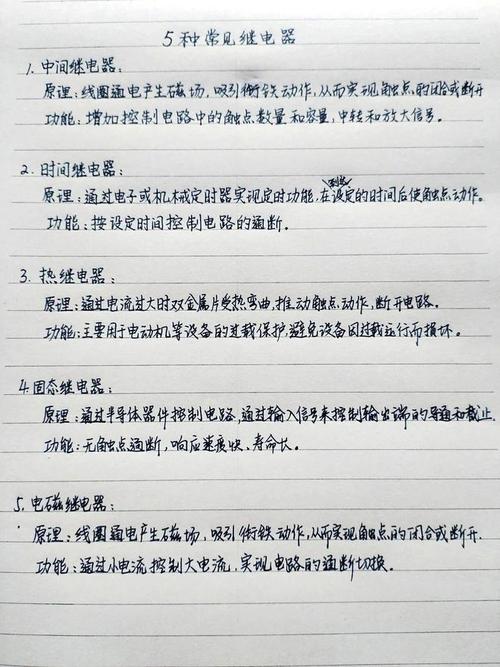 5种常见继电器
1. 中间继电器：
原理：线圈通电产生磁场，吸引衔铁动作，从而实现触点的闭合或断开
功能：增加控制电路中的触点数量和容量，中转和放大信号。
2. 时间继电器：
原理：通过电子或机械定时器实现定时功能，在到达设定的时间后使触点动作。
功能：按设定时间控制电路的通断。
3. 热继电器：
原理：通过电流过大时双金属片受热弯曲，推动触点动作，断开电路。
功能：主要用于电动机等设备的过载保护，避免设备因过载运行而损坏。
4. 固态继电器：
原理：通过半导体器件控制电路，通过输入信号来控制输出端的导通和截止.
功能：无触点通断，响应速度快、寿命长。
5. 电磁继电器：
原理：线圈通电产生磁场，吸引衔铁动作，从而实现触点的闭合或断开.
功能：通过小电流控制大电流，实现电路的通断切换。